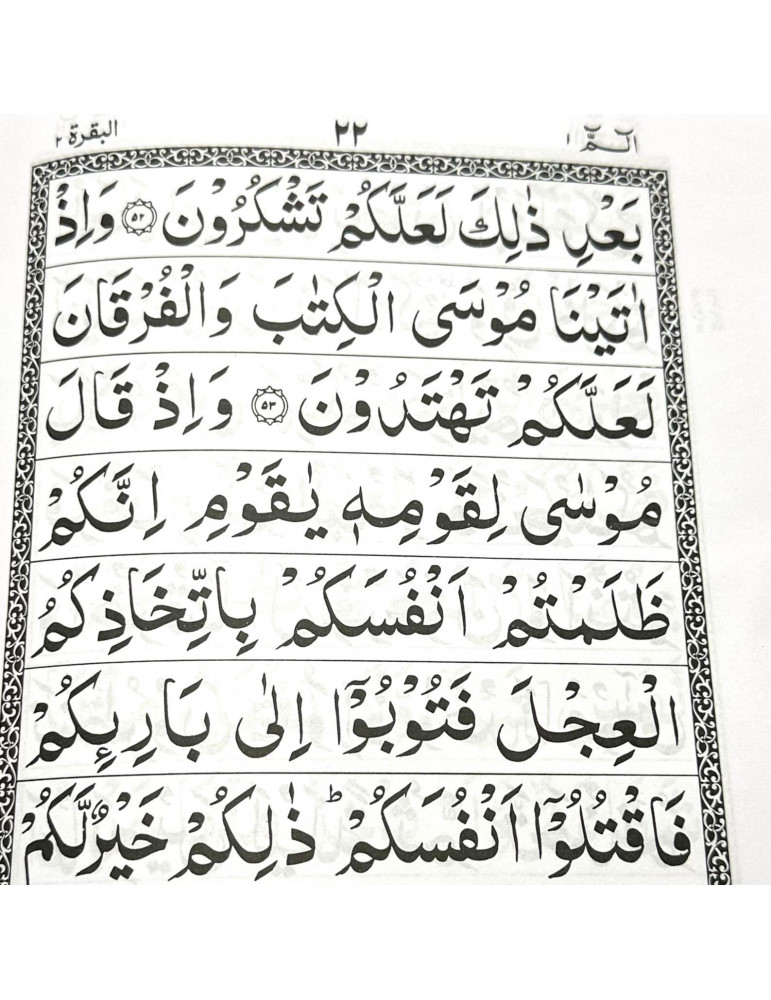 الٓمّٓ ١ ٢٢ البقرة ٢
بَعْدِ ذٰلِكَ لَعَلَّكُمْ تَشْكُرُوْنَ ﴿٥٢﴾ وَاِذْ
اٰتَيْنَا مُوْسَى الْكِتٰبَ وَالْفُرْقَانَ
لَعَلَّكُمْ تَهْتَدُوْنَ ﴿٥٣﴾ وَاِذْ قَالَ
مُوْسٰى لِقَوْمِهٖ يٰقَوْمِ اِنَّكُمْ
ظَلَمْتُمْ اَنْفُسَكُمْ بِاتِّخَاذِكُمُ
الْعِجْلَ فَتُوْبُوْٓا اِلٰى بَارِئِكُمْ
فَاقْتُلُوْٓا اَنْفُسَكُمْ ؕ ذٰلِكُمْ خَيْرٌ لَّكُمْ